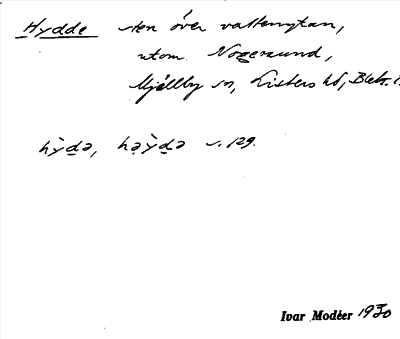 Hydde sten över vattenytan,
utom Nogersund,
Mjällby sn, Listers hd, Blek. l.
hy̆̀də, həy̆̀də s. 129.
Ivar Modéer 1930